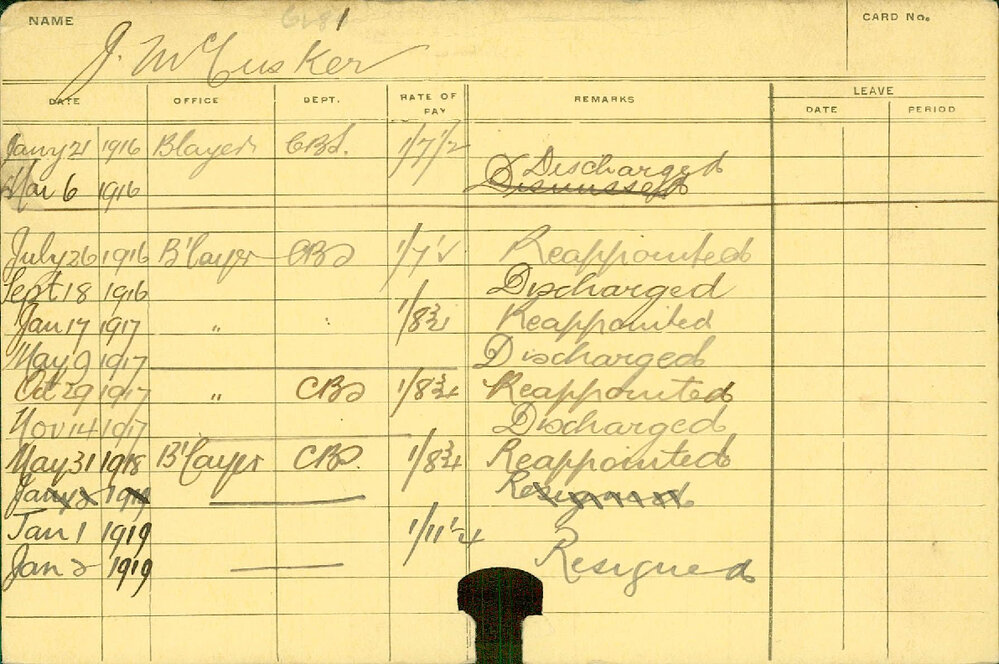 NAME CARD No.
J. McCusker
DATE OFFICE DEPT. RATE OF PAY REMARKS LEAVE
DATE PERIOD
Jany 21 1916 Blayer CBS. 1/7 1/2
Mar 6 1916 Discharged
Dismissed
July 26 1916 B'layer CBS 1/7 1/2 Reappointed
Sept 18 1916 Discharged
Jan 17 1917 " 1/8 3/4 Reappointed
May 9 1917 Discharged
Oct 29 1917 " CBS 1/8 3/4 Reappointed
Nov 14 1917 Discharged
May 31 1918 B'layer CBS. 1/8 3/4 Reappointed
Jany 2 1919 Resigned
Jan 1 1919 1/11 1/4
Jan 2 1919 Resigned